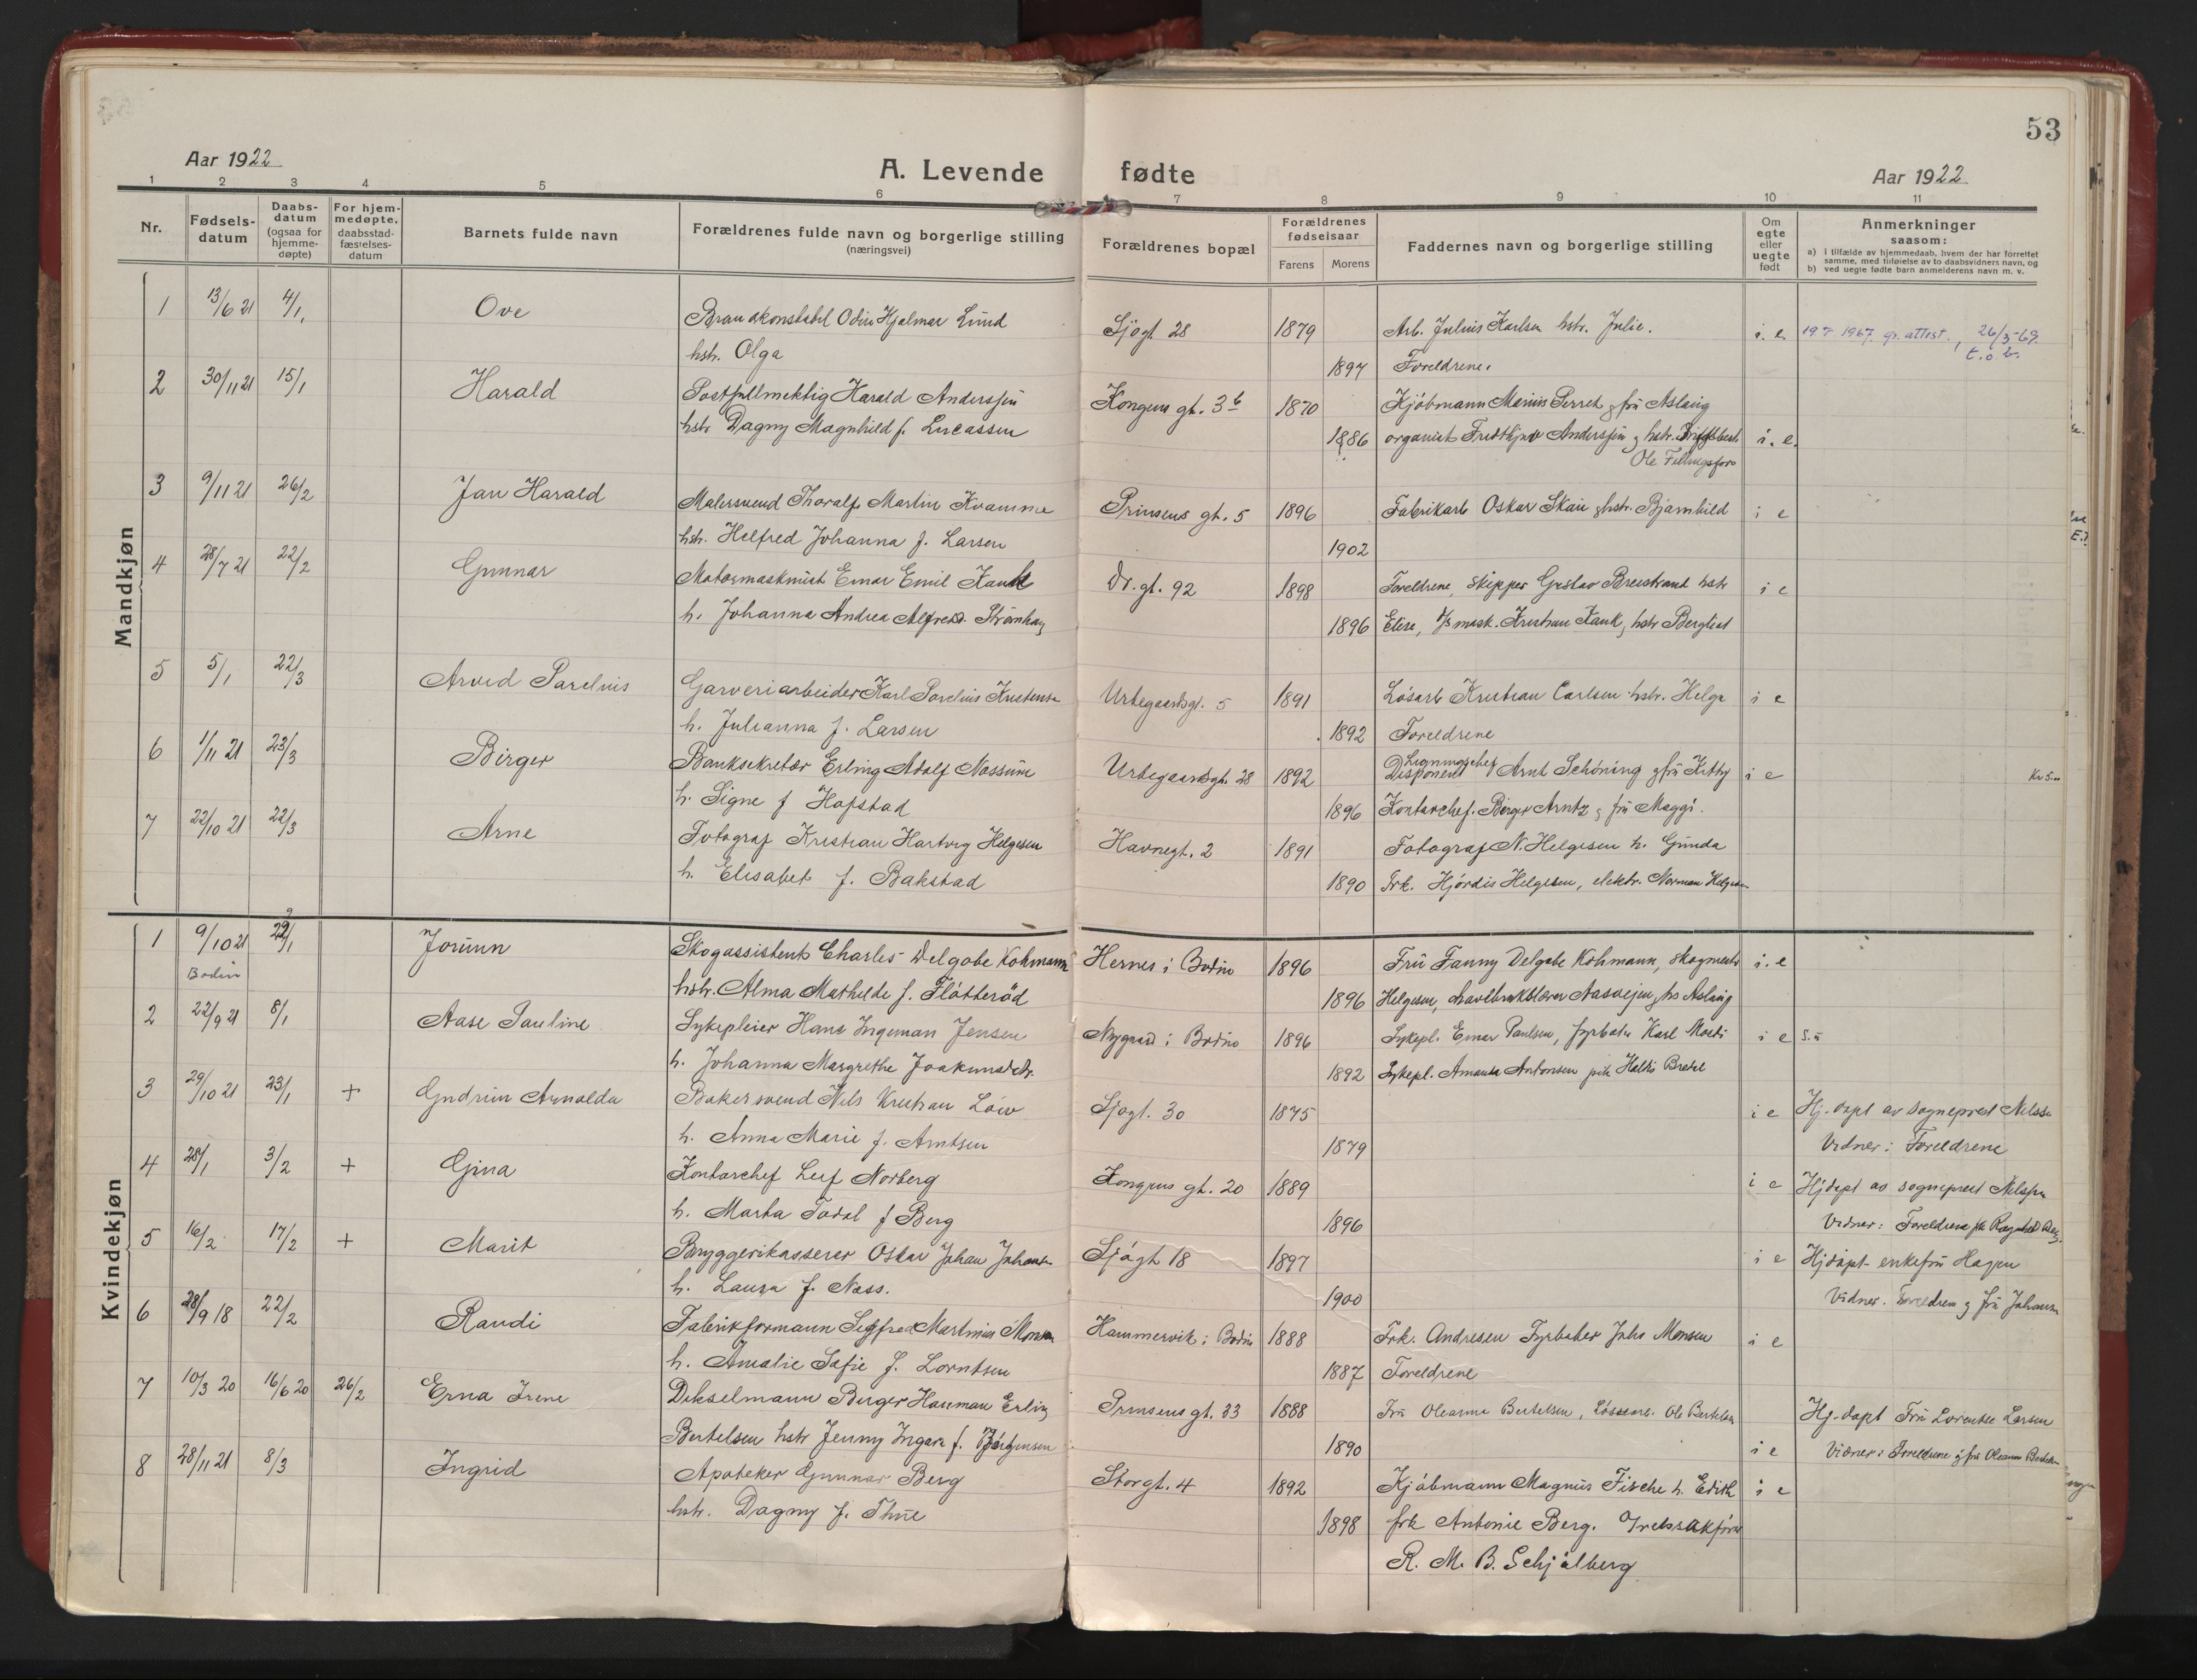 53
Aar 1922
A. Levende fødte
Aar 1922
1 2 3 4 5 6 7 8 9 10 11
Nr.
Fødsels-datum
Daabs-datum (ogsaa for hjemme-døpte)
For hjem-medøpte, daabsstad-fæstelses-datum
Barnets fulde navn
Forældrenes fulde navn og borgerlige stilling (næringsvei)
Forældrenes bopæl
Forældrenes fødselsaar
Farens Morens
Faddernes navn og borgerlige stilling
Om egte eller uegte født
Anmerkninger saasom:
a) i tilfælde av hjemmedaab, hvem der har forrettet samme, med tilføielse av to daabsvidners navn, og
b) ved uegte fødte barn anmelderens navn m. v.
Mandkjøn
1 13/6 21 4/1 Ove Brandkonstabel Odin Hjalmar Lund Sjøgt 28 1879 Arb. Julius Karlsen hstr. Julie. i. e. 1967 gr. attest, 26/3-69
hstr. Olga 1897 Foreldrene. t.o b.
2 30/11 21 15/1 Harald Postfullmektig Harald Anderssen Kongens gt. 3b 1870 Kjøbmann Marius Perret & fru Aslaug
hstr Dagny Magnhild f. Lucassen 1886 organist Fridtkjov Anderssen & hstr. i. e.
Ole
3 9/11 21 26/2 Jan Harald Malersvend Thoralf Martin Kvamme Prinsens gt. 5 1896 Fabrikarb Oskar Skau & hstr. Bjarnhild i e
hstr. Helfred Johanna f. Larsen 1902
4 28/7 21 22/2 Gunnar Motormaskinist Einar Emil Kank Dr. gt. 92 1898 Foreldrene, skipper Gustav Breistrand hstr i e
h. Johanna Andrea Alfredd. 1896 Elise, mask. Kristian Kank, hstr Bergliot
5 5/1 22/3 Arvid Parelius Garveriarbeider Karl Parelius Kristensen Urtegaardsgt. 5 1891 Løsarb Kristian Carlsen hstr. Helga i e
h. Julianna f. Larsen 1892 Foreldrene
6 1/11 21 23/3 Birger Banksekretær Erling Adolf Nossum Urtegaardsgt. 28 1892 Ligningschef Disponent Arnt Schöning & fru Kitty i e
h. Signe f Hofstad 1896 Kontorchef. Birger Arntz & fru Maggi.
7 22/10 21 22/3 Arne Fotograf Kristian Hartvig Helgesen Havnegt. 2 1891 Fotograf N. Helgesen h. Gunda
h. Elisabet f. Bakstad 1890 Frk. Hjørdis Helgesen, elektr. Norman Helgesen
Kvindekjøn
1 9/10 21 29/1 Jorunn Skogassistent Charles Delgobe Kohmann Hernes i Bodin 1896 Fru Fanny Delgobe Kohmann, skogmester i. e
Bodin hstr. Alma Mathilde f. Fløtterød 1896 Helgesen,
2 22/9 21 8/1 Aase Pauline Sykepleier Hans Ingeman Jensen Nygaard i Bodin 1896 Sykepl. Einar Paulsen, fyrbøter Karl i e
h. Johanna Margrethe Joakimsdtr. 1892 Sykepl. Amanda Antonsen pike
3 29/10 21 23/1 + Gudrun Arnolda Bakersvend Nils Kristian Löw Sjøgt. 30 1875 i e Hj. døpt av sogneprest Nilssen
h. Anna Marie f. Arntsen 1879 Vidner: Foreldrene
4 28/1 3/2 + Gina Kontorchef Leif Norberg Kongens gt. 20 1889 i e Hjdøpt av sogneprest Nilssen
h. Marta Todal f Berg 1896 Vidner: Foreldrene
5 16/2 17/2 + Marit Bryggerikasserer Oskar Johan Johansen Sjøgt 18 1897 i e Hjdøpt enkefru Hagen
h. Laura f. Næss. 1900 Vidner. Foreldrene & fru Johansen
6 28/9 18 22/2 Randi Fabrikformann Sigfred Martinius Monsen Hammervik i Bodin 1888 Frk. Andresen Fyrbøter Johs Monsen i e
h. Amalie Sofie f. Lorntsen 1887 Foreldrene
7 10/3 20 16/6 20 26/2 Erna Irene Dekselmann Birger Hauman Erling Prinsens gt. 33 1888 Fru Oleanna Bertelsen, Løssearb. Ole Bertelsen Hj. døpt Fru Lorentse Larsen
Bertelsen hstr Jenny Ingara f. Børgensen 1890 i e Vidner: Foreldrene & fru Oleanna Bertelsen
8 28/11 21 8/3 Ingrid Apoteker Gunnar Berg Storgt. 4 1892 Kjøbmann Magnus Fische h. Edith i e
hstr. Dagny f. Thue 1898 frk Antonie Berg.
R. M. B. Schjølberg